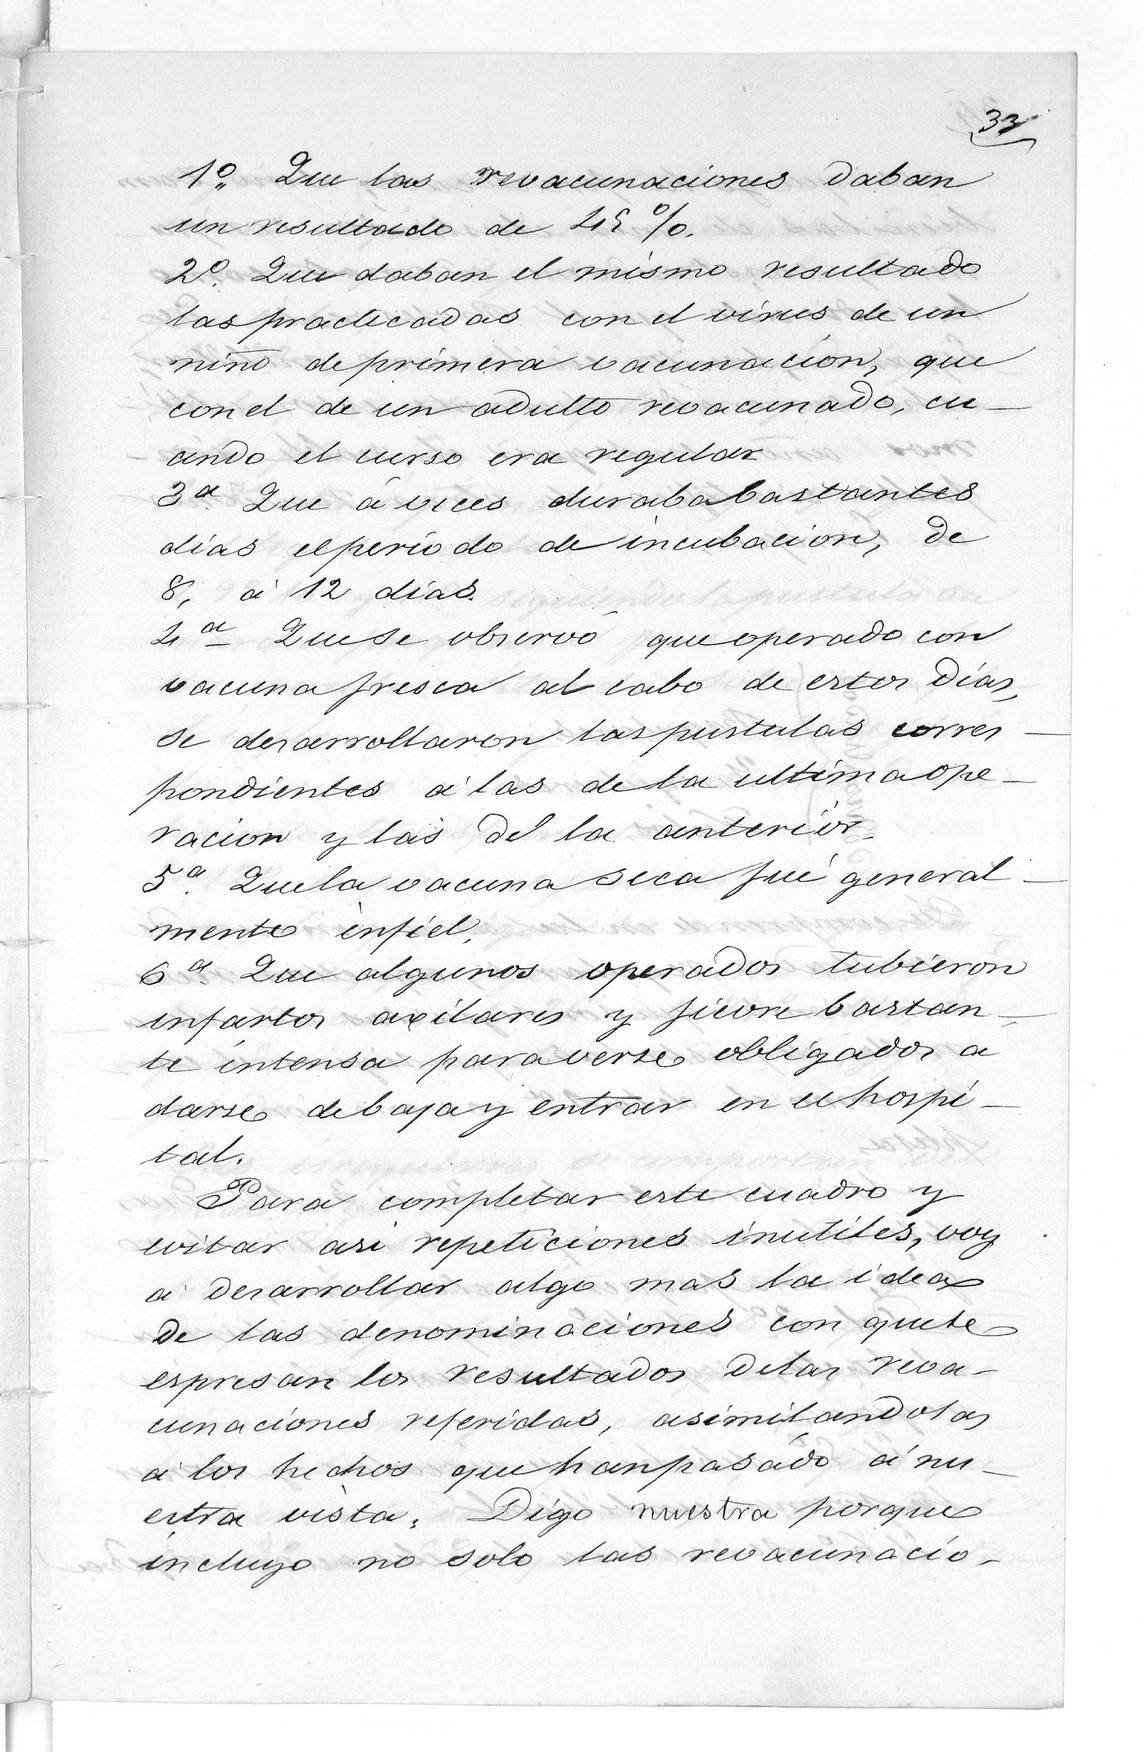 33
1º. Que las revacunaciones daban
un resultado de 45 %.
2º. Que daban el mismo resultado
las practicadas con el virus de un
niño de primera vacunacion, que
con el de un adulto revacunado, cu-
ando el curso era regular
3ª. Que á vices duraba bastantes
dias el periodo de incubacion, de
8, á 12 dias.
4ª Que se observó que operado con
vacuna fresca al cabo de estos dias,
se desarrollaron las pustulas corres-
pondientes á las de la ultima ope-
racion y las del la anterior.
5ª. Que la vacuna seca fué general-
mente infiel.
6ª. Que algunos operados tubieron
infartos axilares y fievre bastan-
te intensa para verse obligados a
darse de baja y entrar en el hospi-
tal.
Para completar este cuadro y
evitar asi repeticiones inutiles, voy
á desarrollar algo mas la idea
de las denominaciones con que se
espresan los resultados de las reva-
cunaciones referidas, asimilandolas
á los hechos que han pasado á nu-
estra vista. Digo nuestra porque
incluyo no solo las revacunacio-